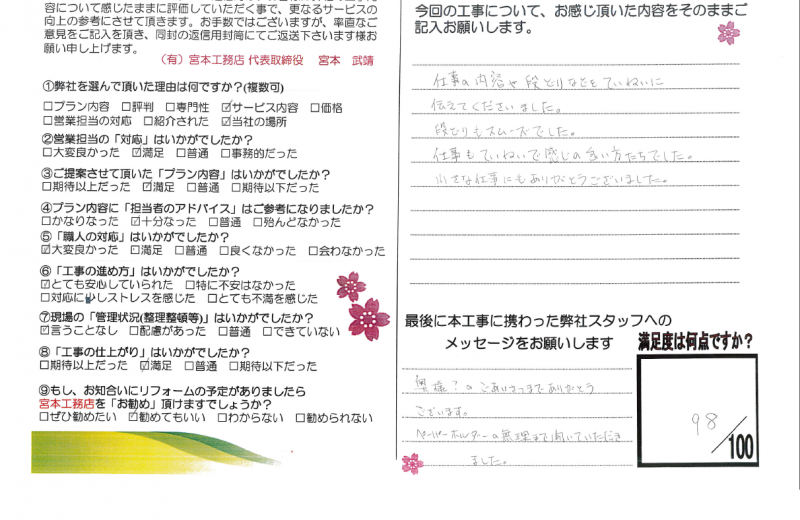 容について感じたままに評価していただく事で、更なるサービスの
向上の参考にさせて頂きます。お手数ではございますが、率直なご
意見をご記入を頂き、同封の返信用封筒にてご返送下さいます様お
願い申し上げます。
（有）宮本工務店 代表取締役 宮本 武靖
①弊社を選んで頂いた理由は何ですか？(複数可)
□プラン内容 □評判 □専門性 ☑サービス内容 □価格
□営業担当の対応 □紹介された ☑当社の場所
②営業担当の「対応」はいかがでしたか？
□大変良かった ☑満足 □普通 □事務的だった
③ご提案させて頂いた「プラン内容」はいかがでしたか？
□期待以上だった ☑満足 □普通 □期待以下だった
④プラン内容に「担当者のアドバイス」はご参考になりましたか？
□かなりなった ☑十分なった □普通 □殆んどなかった
⑤「職人の対応」はいかがでしたか？
☑大変良かった □満足 □普通 □良くなかった □会わなかった
⑥「工事の進め方」はいかがでしたか？
☑とても安心していられた □特に不安はなかった
□対応に少しストレスを感じた □とても不満を感じた
⑦現場の「管理状況(整理整頓等)」はいかがでしたか？
☑言うことなし □配慮があった □普通 □できていない
⑧「工事の仕上がり」はいかがでしたか？
□期待以上だった ☑満足 □普通 □期待以下だった
⑨もし、お知合いにリフォームの予定がありましたら
宮本工務店を「お勧め」頂けますでしょうか？
□ぜひ勧めたい ☑勧めてもいい □わからない □勧められない
今回の工事について、お感じ頂いた内容をそのままご
記入お願いします。
仕事の内容や段どりなどをていねいに
伝えてくださいました。
段どりもスムーズでした。
仕事もていねいで感じの良い方たちでした。
小さな仕事にもありがとうございました。
最後に本工事に携わった弊社スタッフへの
メッセージをお願いします
奥様？のごあいさつまでありがとう
ございます。
ペーパーホルダーの無理まで聞いていただき
ました。
満足度は何点ですか？
98/100